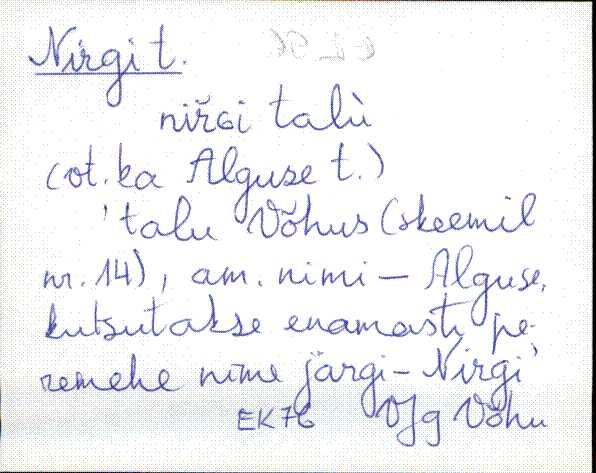 Nirgi t.
nirGi talù
(ot. ka Alguse t.)
'talu Võhus (skeemil
nr. 14), am. nimi – Alguse,
kutsutakse enamasti pe-
remehe nime järgi – Nirgi'
EK76 VJg Võhu